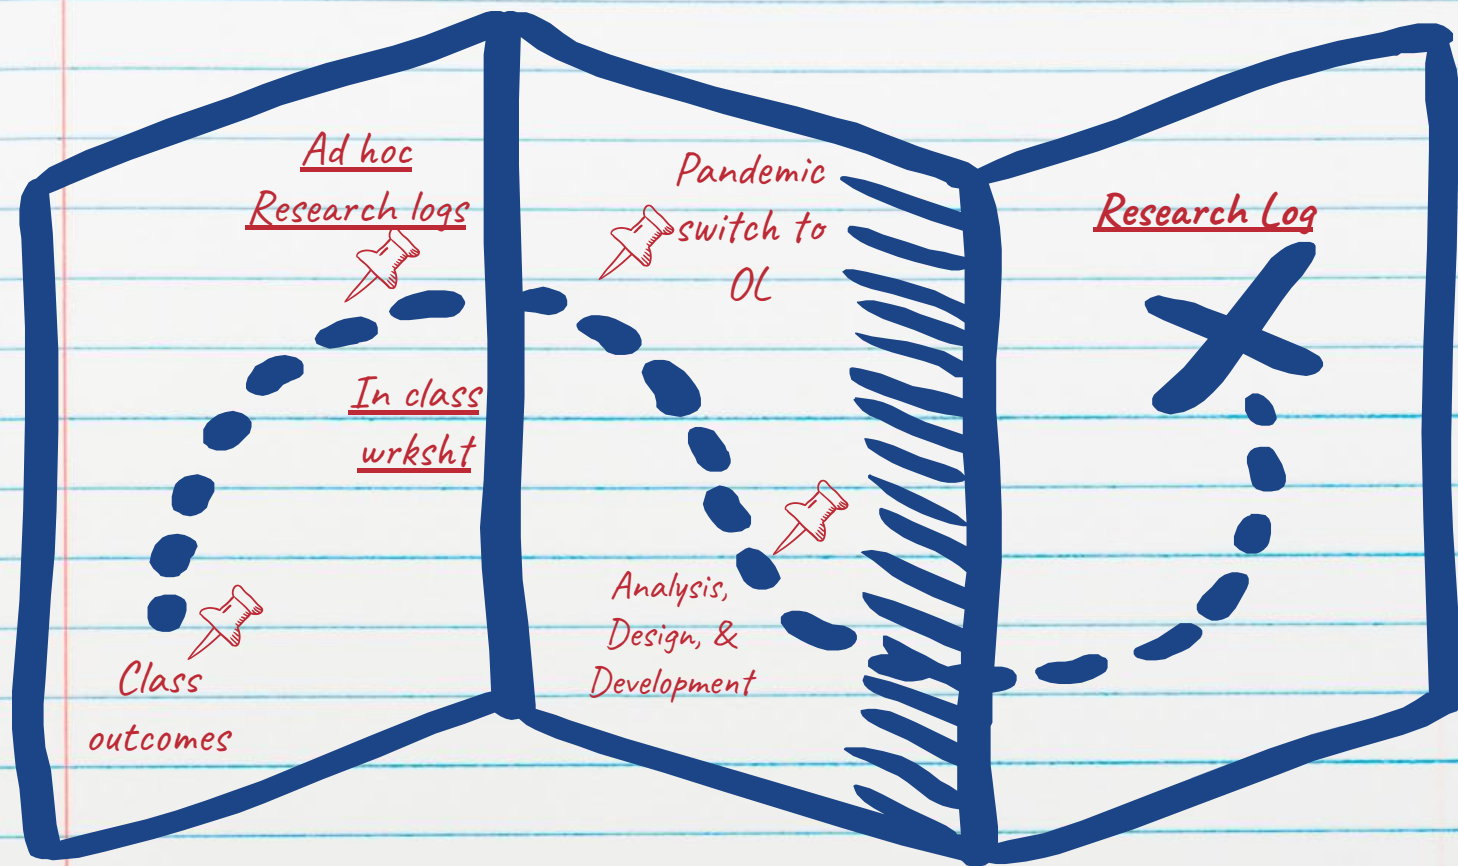 Ad hoc
Research logs
In class
wrksht
Class
outcomes
Pandemic
switch to
OL
Analysis,
Design, &
Development
Research Log